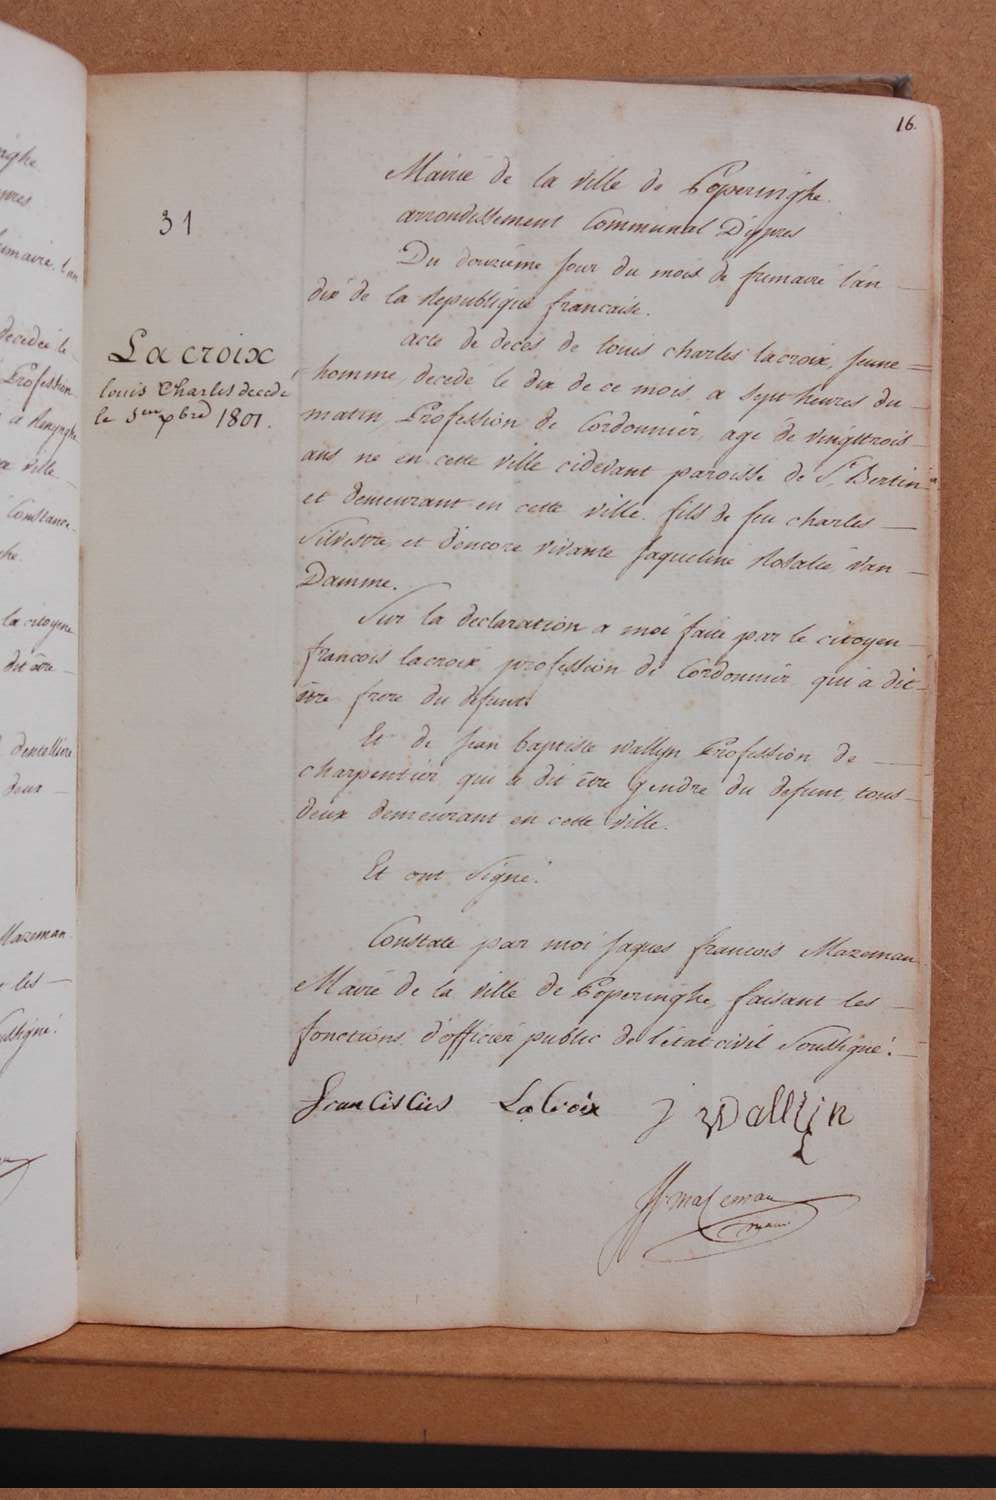 16.
31
Mairie de la ville de Poperinghe.
arrondissement Communal D'ypres
Du douzième jour du mois de frimaire l'an
dix de la Republique francaise.
Lacroix,
louis Charles decede
le 1801.
acte de deces de louis charles lacroix, jeune=
homme, decedé le dix de ce mois a sept heures du
matin, Profession de Cordonnier, age de vingttrois
ans né en cette ville cidevant paroisse de St Bertin
et demeurant en cette ville fils de feu charles
Silvestre, et d'encore vivante Jaqueline Rosalie, van
Damme.
Sur la declaration a moi faite par le citoyen
francois lacroix, profession de Cordonnier qui a dit
être frere du defunt.
Et de Jean baptiste wallyn Profession de
charpentier qui a dit être gendre du defunt, tous
deux demeurant en cette ville.
Et ont signé.
Constaté par moi Jaques francois Mazeman
Maire de la ville de Poperinghe, faisant les
fonctions d'officier public de l'etat civil Soussigné.
Franciscus LaCroix J Wallyn
mazeman
maire
nghe.
decedée le
Profession
a ville
Constance
la citoyene
dit être
dentellière
deux
Mazeman
les